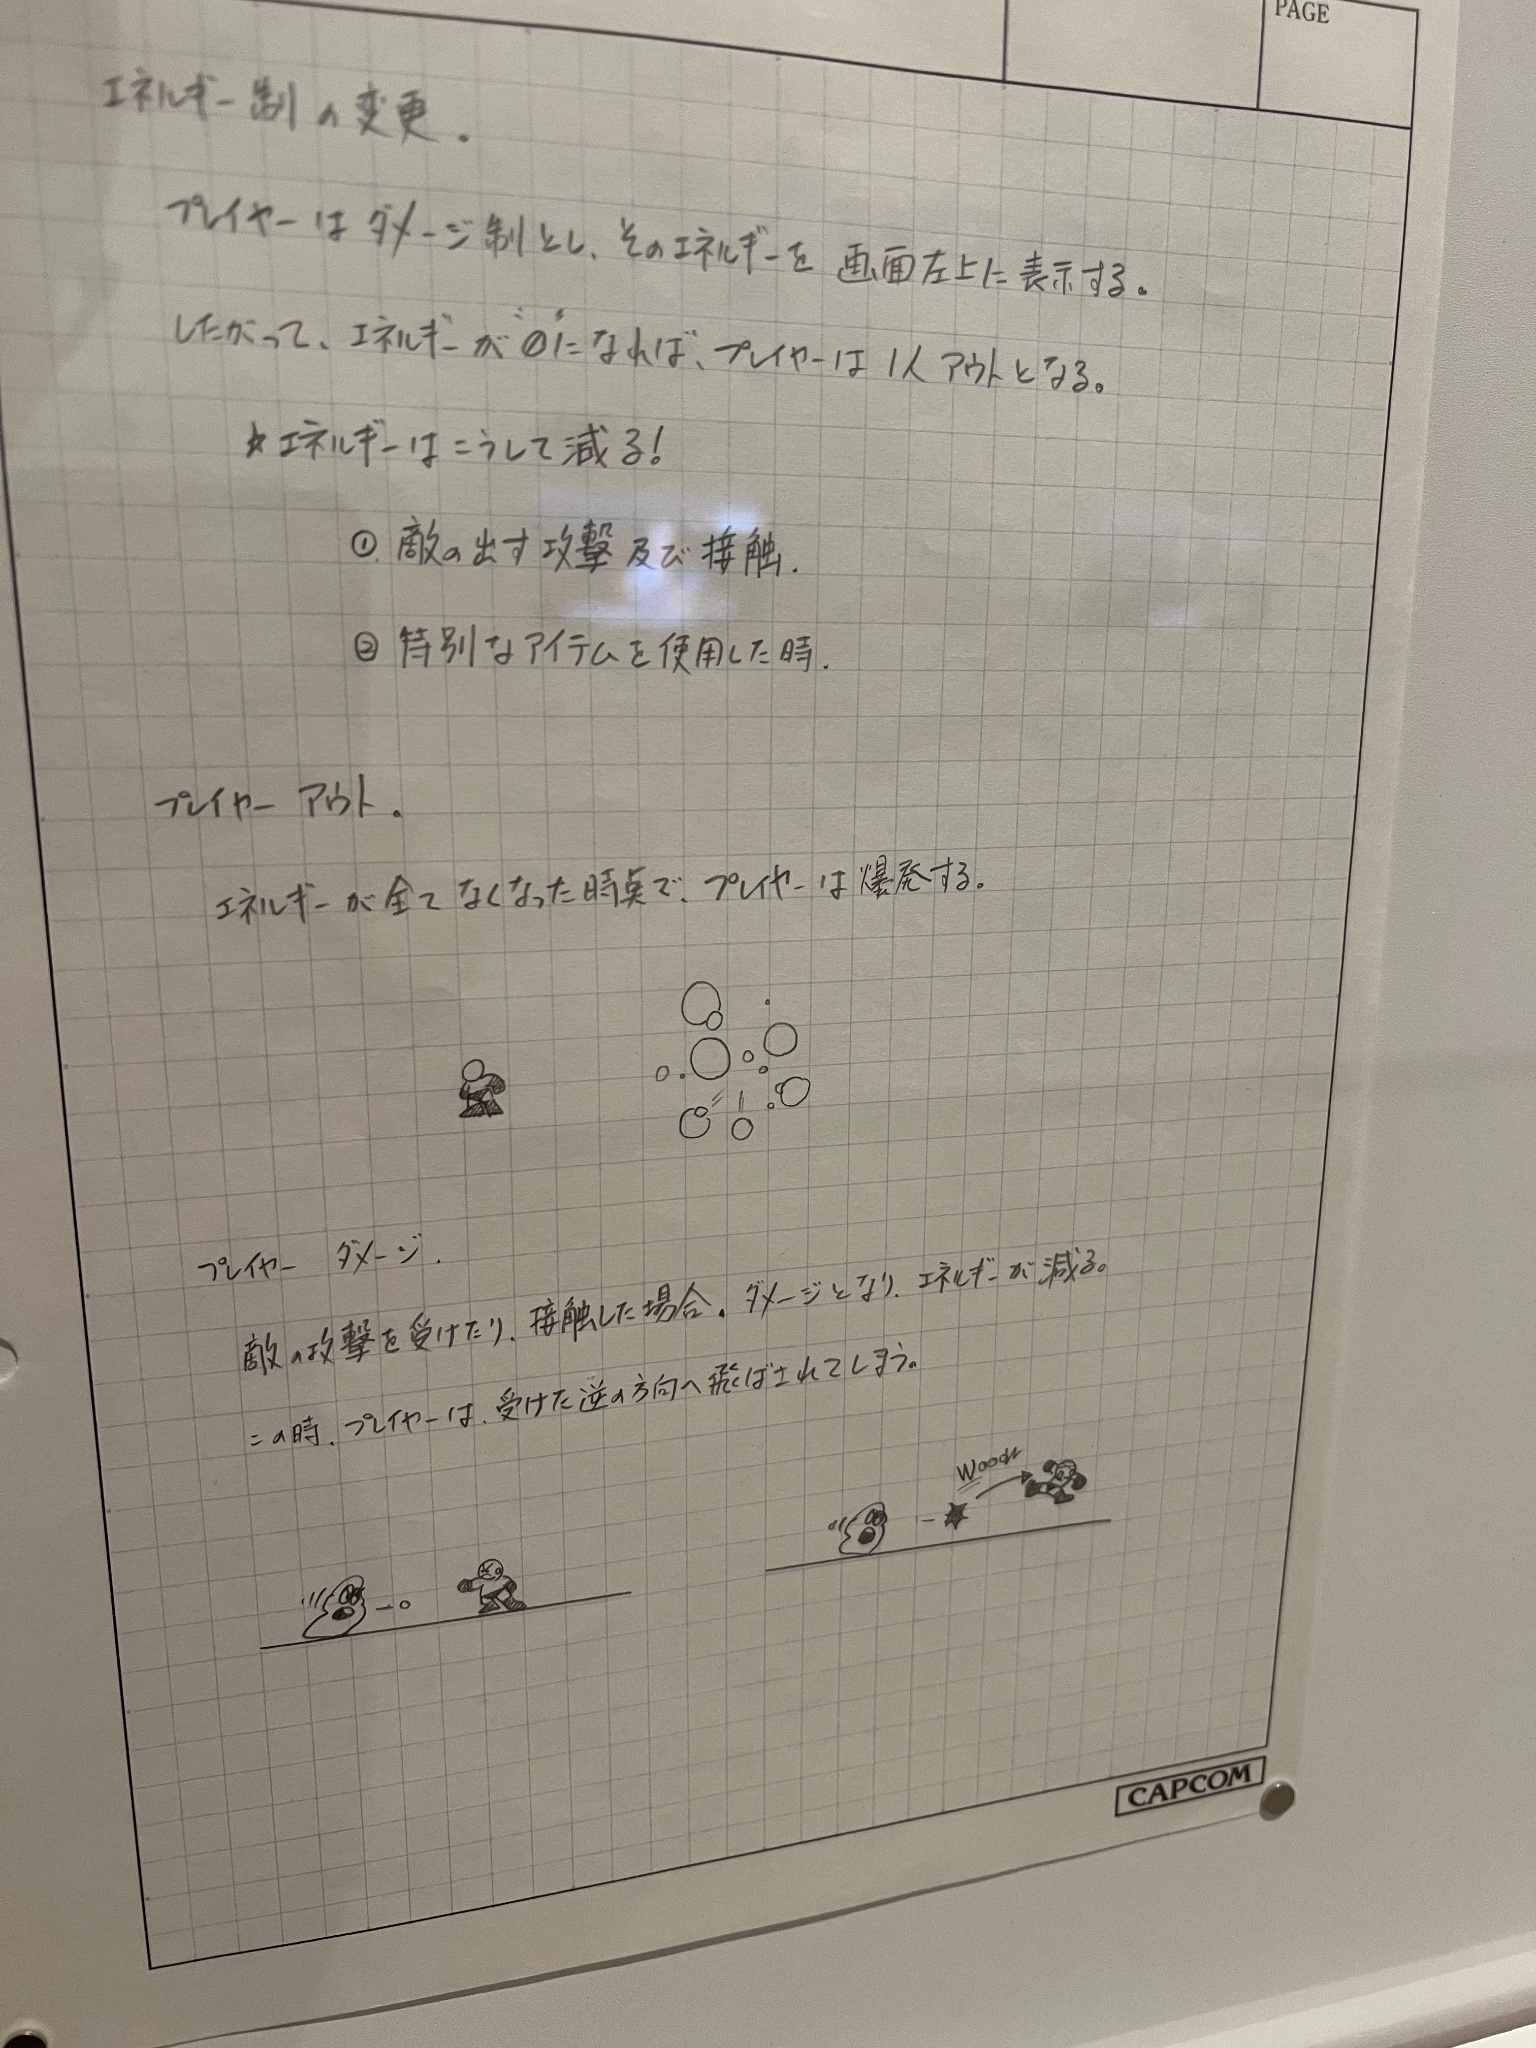 PAGE
エネルギー制の変更.
プレイヤーはダメージ制とし、そのエネルギーを画面左上に表示する。
したがって、エネルギーが"0"になれば、プレイヤーは1人アウトとなる。
☆エネルギーはこうして減る!
① 敵の出す攻撃及び接触.
② 特別なアイテムを使用した時.
プレイヤー アウト.
エネルギーが全てなくなった時点で、プレイヤーは爆発する。
プレイヤー ダメージ.
敵の攻撃を受けたり、接触した場合、ダメージとなり、エネルギーが減る。
この時、プレイヤーは、受けた逆の方向へ飛ばされてしまう。
CAPCOM